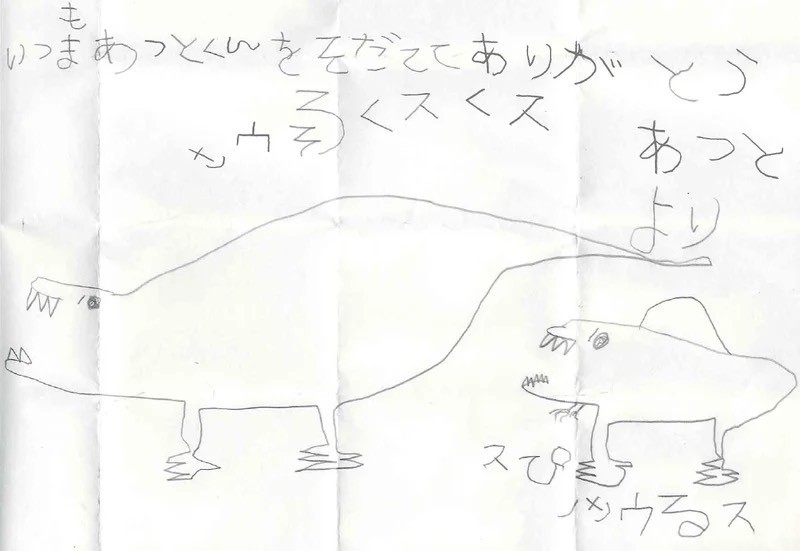 も
いつまあつとくんをそだててありがとう
くスくス
あつと
より
スぴ
ウるス